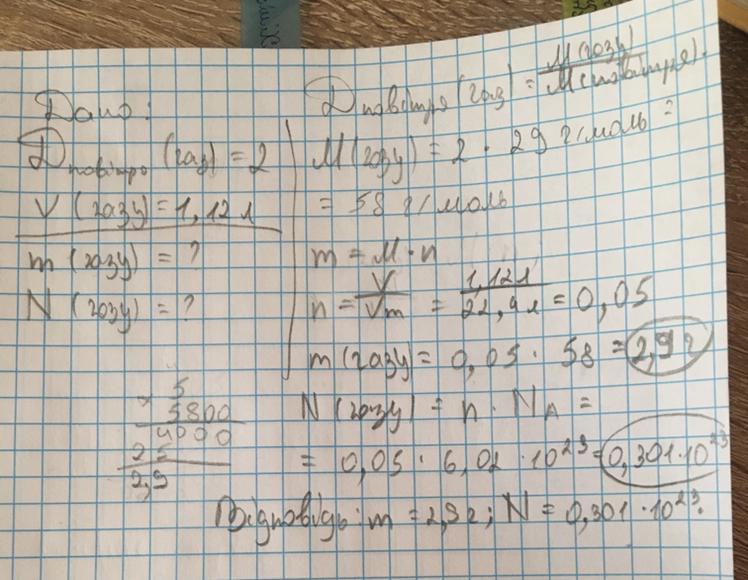 Дано:
Dповітря (газ) = 2
V (газу) = 1,12 л
m (газу) = ?
N (газу) = ?
5
× 5800
4000
25
2,9
Dповітря (газ) = M(газу) / M(повітря).
M(газу) = 2 · 29 г/моль =
= 58 г/моль
m = M · n
n = V / Vm = 1,12л / 22,4л = 0,05
m (газу) = 0,05 · 58 = 2,9 г
N (газу) = n · NA =
= 0,05 · 6,02 · 10²³ = 0,301 · 10²³
Відповідь: m = 2,9 г; N = 0,301 · 10²³.